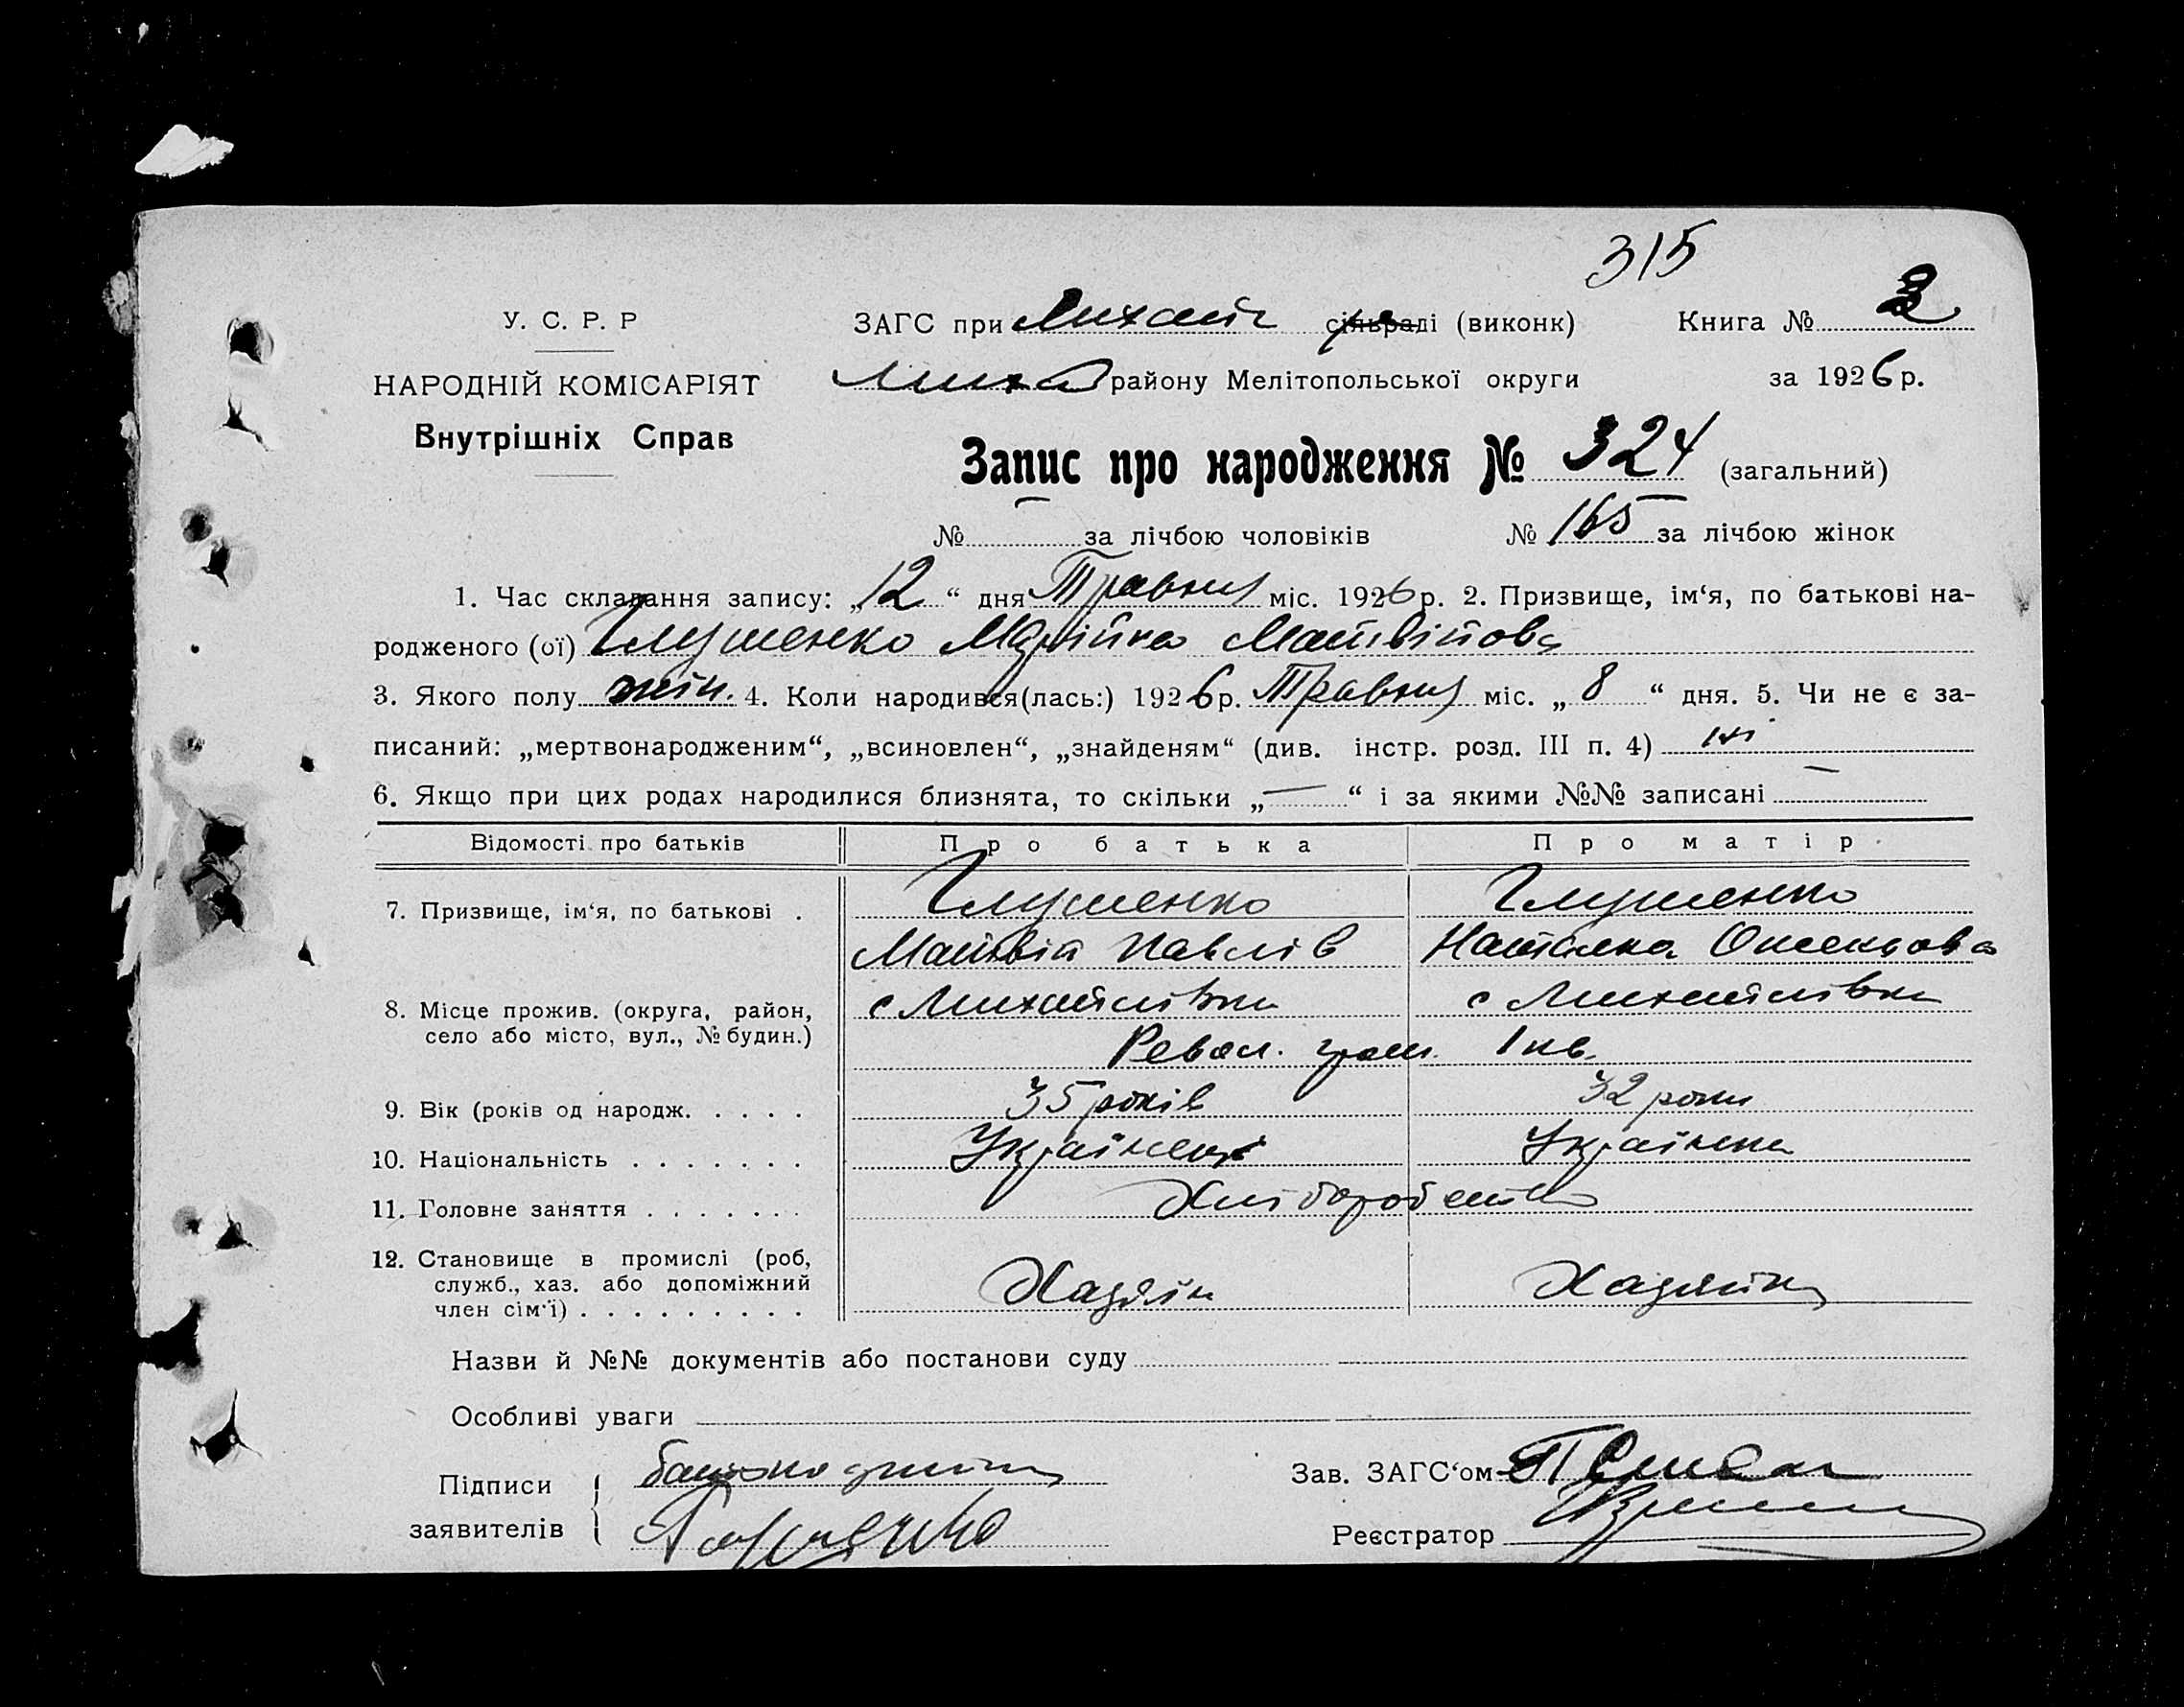 315
У. С. Р. Р
ЗАГС при Михайл сільраді (виконк) Книга № 3
НАРОДНІЙ КОМІСАРІЯТ
Миха району Мелітопольської округи за 1926 р.
Внутрішніх Справ
Запис про народження № 324 (загальний)
№ — за лічбою чоловіків № 165 за лічбою жінок
1. Час складання запису: „12“ дня Травня міс. 1926 р. 2. Призвище, ім‘я, по батькові на-
родженого (ої) Глушенко Марійка Матвійова
3. Якого полу жін. 4. Коли народився(лась:) 1926 р. Травня міс. „8“ дня. 5. Чи не є за-
писаний: „мертвонародженим“, „всиновлен“, „знайденям“ (див. інстр. розд. III п. 4) ні
6. Якщо при цих родах народилися близнята, то скільки „—“ і за якими №№ записані —
Відомості про батьків Про батька Про матір
7. Призвище, ім‘я, по батькові . Глушенко Глушенко
Матвій Павлів Наталка
8. Місце прожив. (округа, район, с Михайлівка с Михайлівка
село або місто, вул., № будин.) Револ. гром. 1 кв.
9. Вік (років од народж. . . . . 35 років 32 роки
10. Національність . . . . . . . Українець Українка
11. Головне заняття . . . . . . . Хліборобство
12. Становище в промислі (роб,
служб., хаз. або допоміжний Хазяїн Хазяйка
член сім‘ї) . . . . . . . . .
Назви й №№ документів або постанови суду
Особливі уваги
Підписи
Зав. ЗАГС‘ом
заявителів
Реєстратор